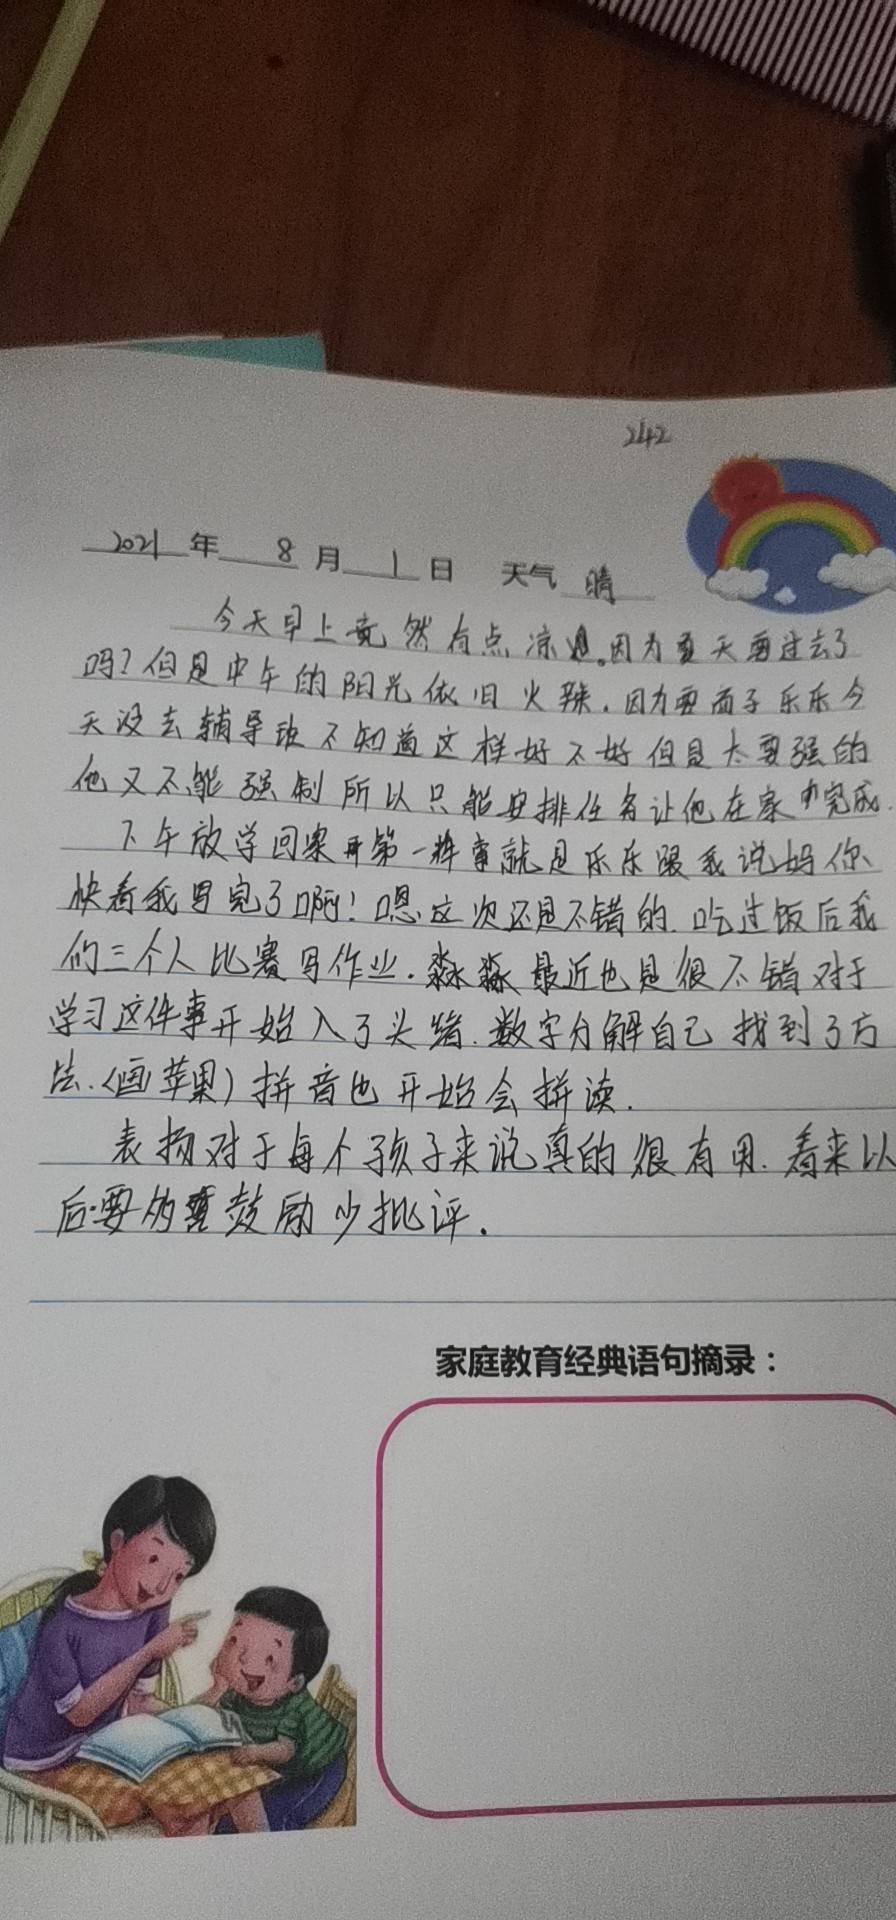 242
2021年8月1日 天气 晴
今天早上竟然有点凉爽。因为夏天要过去了
吗？但是中午的阳光依旧火辣.因为要面子乐乐今
天没去辅导班不知道这样好不好但是太要强的
他又不能强制所以只能安排任务让他在家中完成.
下午放学回家第一件事就是乐乐跟我说妈你
快看我写完了啊！嗯这次还是不错的.吃过饭后我
们三个人比赛写作业.淼淼最近也是很不错对于
学习这件事开始入了头绪.数字分解自己找到了方
法.（画苹果）拼音也开始会拼读.
表扬对于每个孩子来说真的很有用.看来以
后要多鼓励少批评.
家庭教育经典语句摘录：